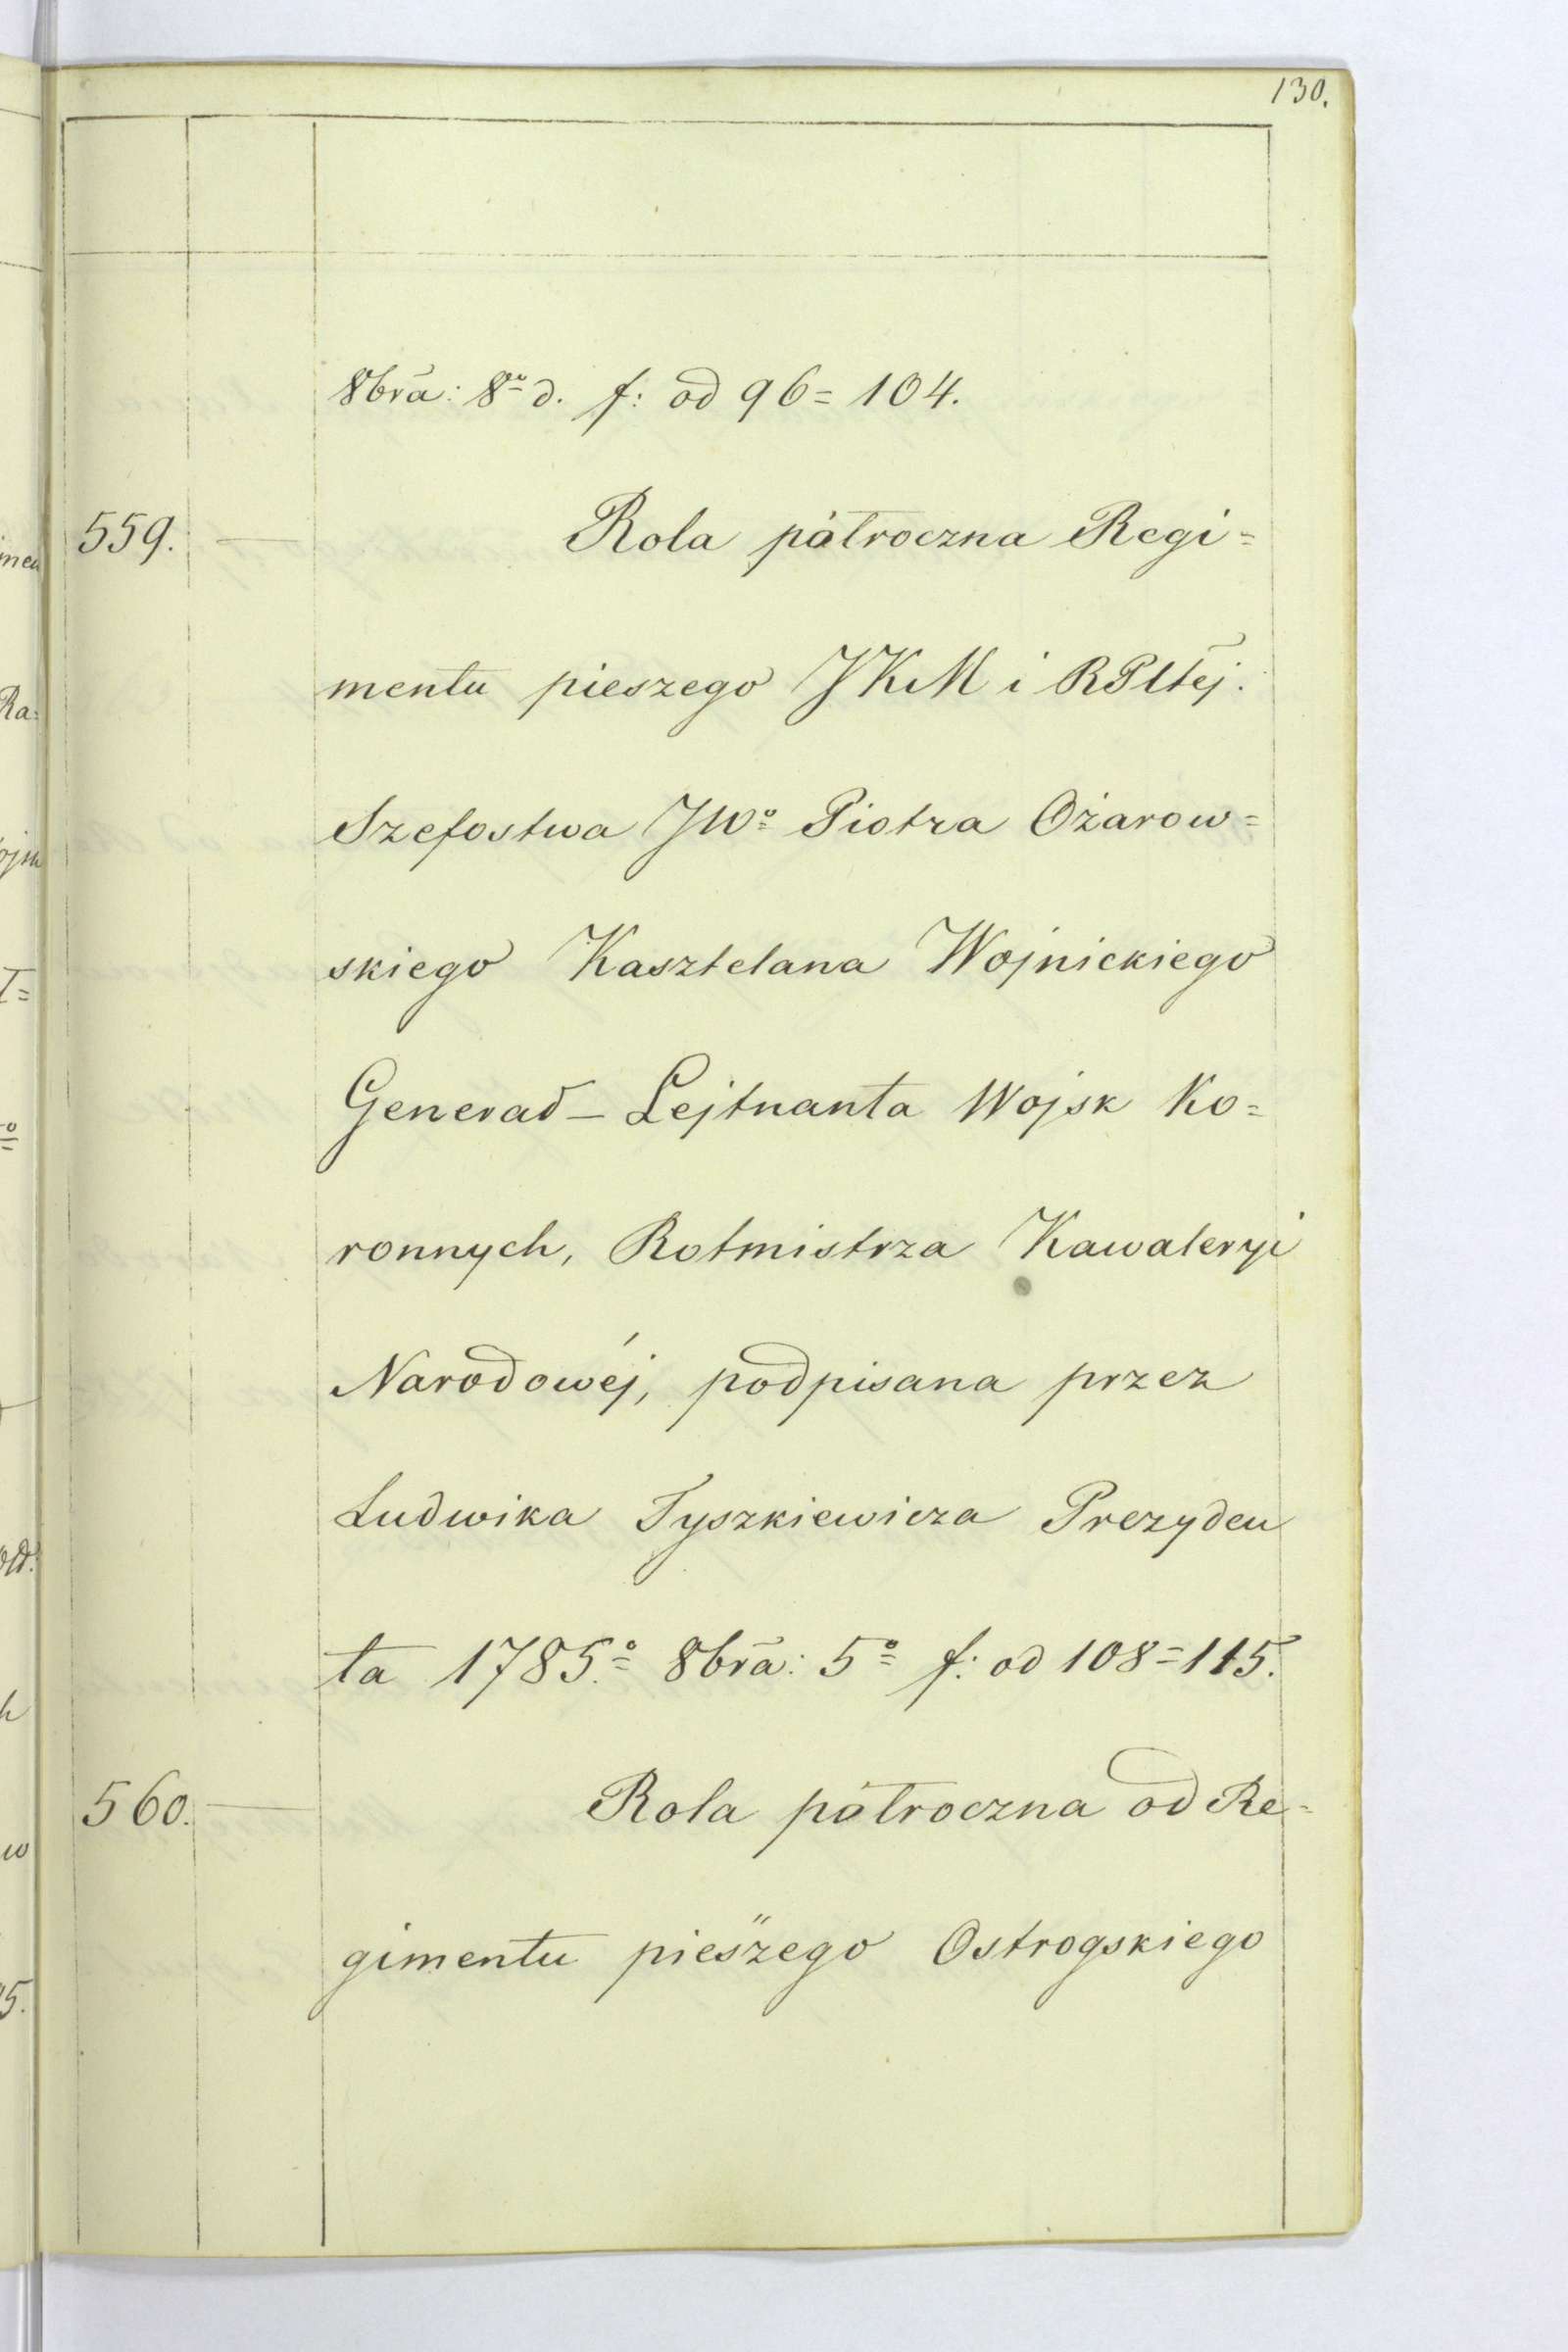 130.
8bra: 8º d. f: od 96=104.
559. — Rola półroczna Regi=
mentu pieszego JKM i RPltej.
Szefostwa JWº Piotra Ożarow=
skiego Kasztelana Wojnickiego
Generał-Lejtnanta Wojsk Ko=
ronnych, Rotmistrza Kawaleryi
Narodowéj, podpisana przez
Ludwika Tyszkiewicza Prezyden
ta 1785.º 8bra: 5º f: od 108=115.
560. — Rola półroczna od Re=
gimentu pieszego Ostrogskiego